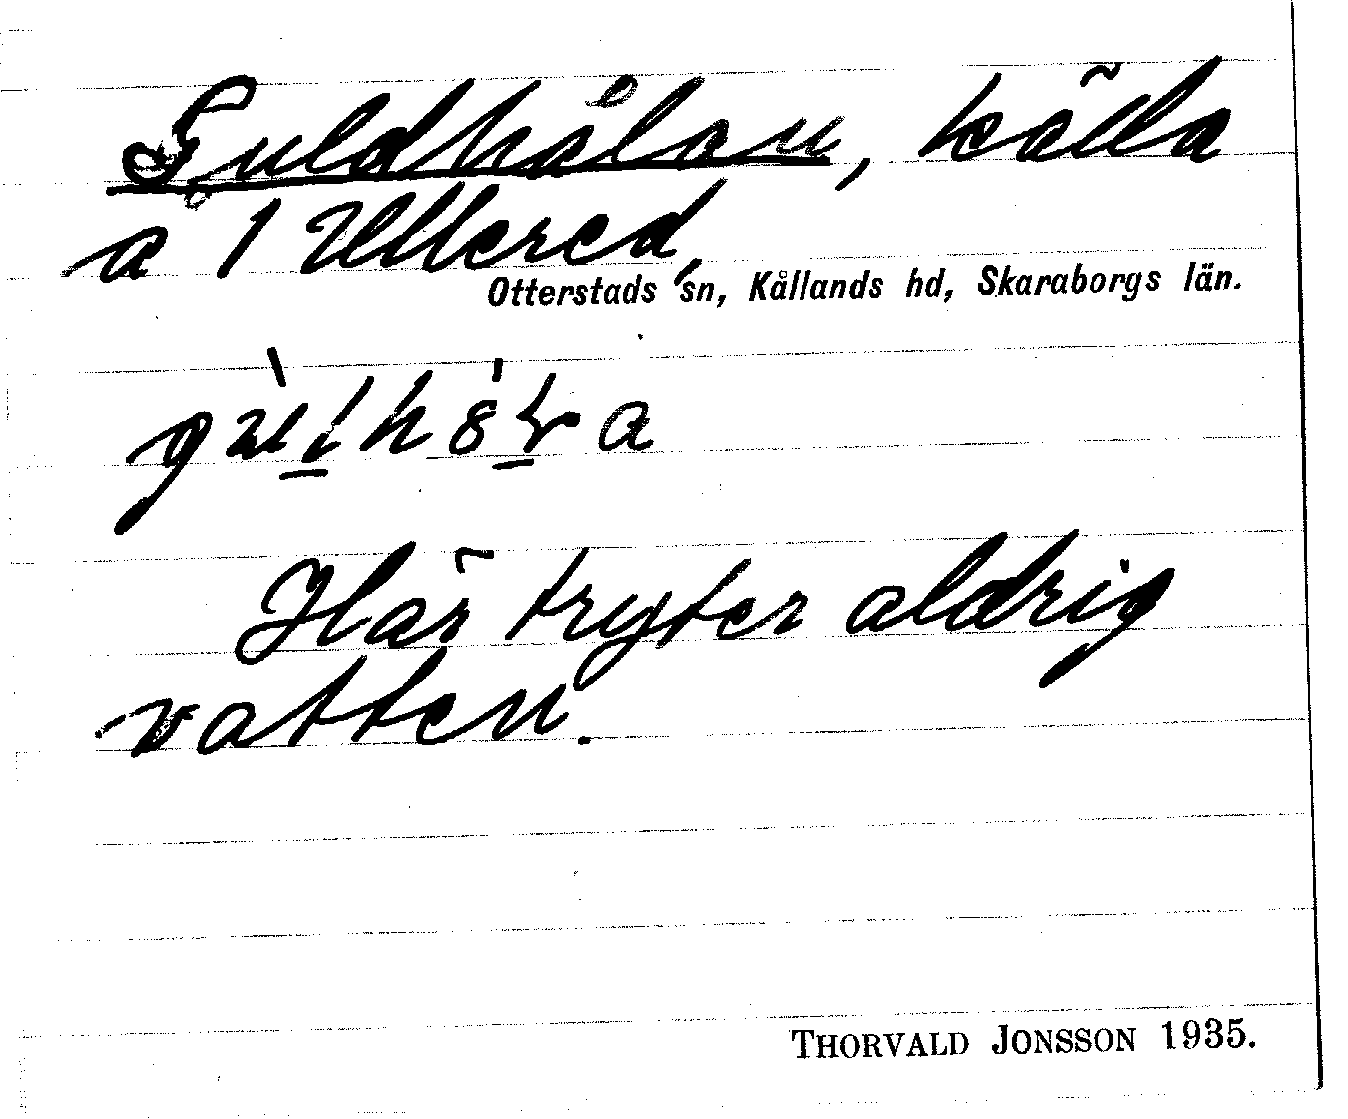 Guldhålan, källa
å 1 Ullered,
Otterstads sn, Kållands hd, Skaraborgs län.
Här tryter aldrig
vatten.
THORVALD JONSSON 1935.